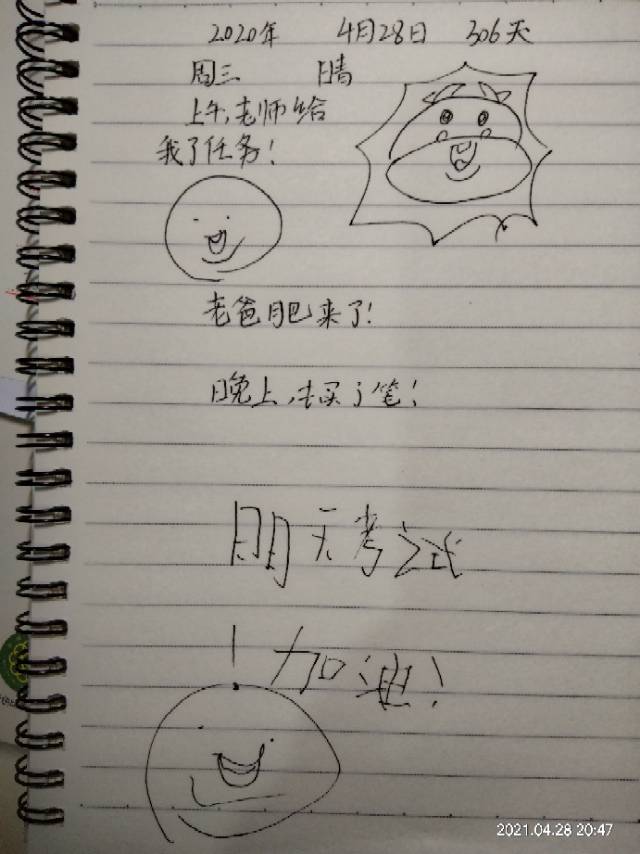 2020年 4月28日 306天
周三 晴
上午,老师给
我了任务!
老爸肥来了!
晚上,去买了笔!
明天考试
!加油!
2021.04.28 20:47